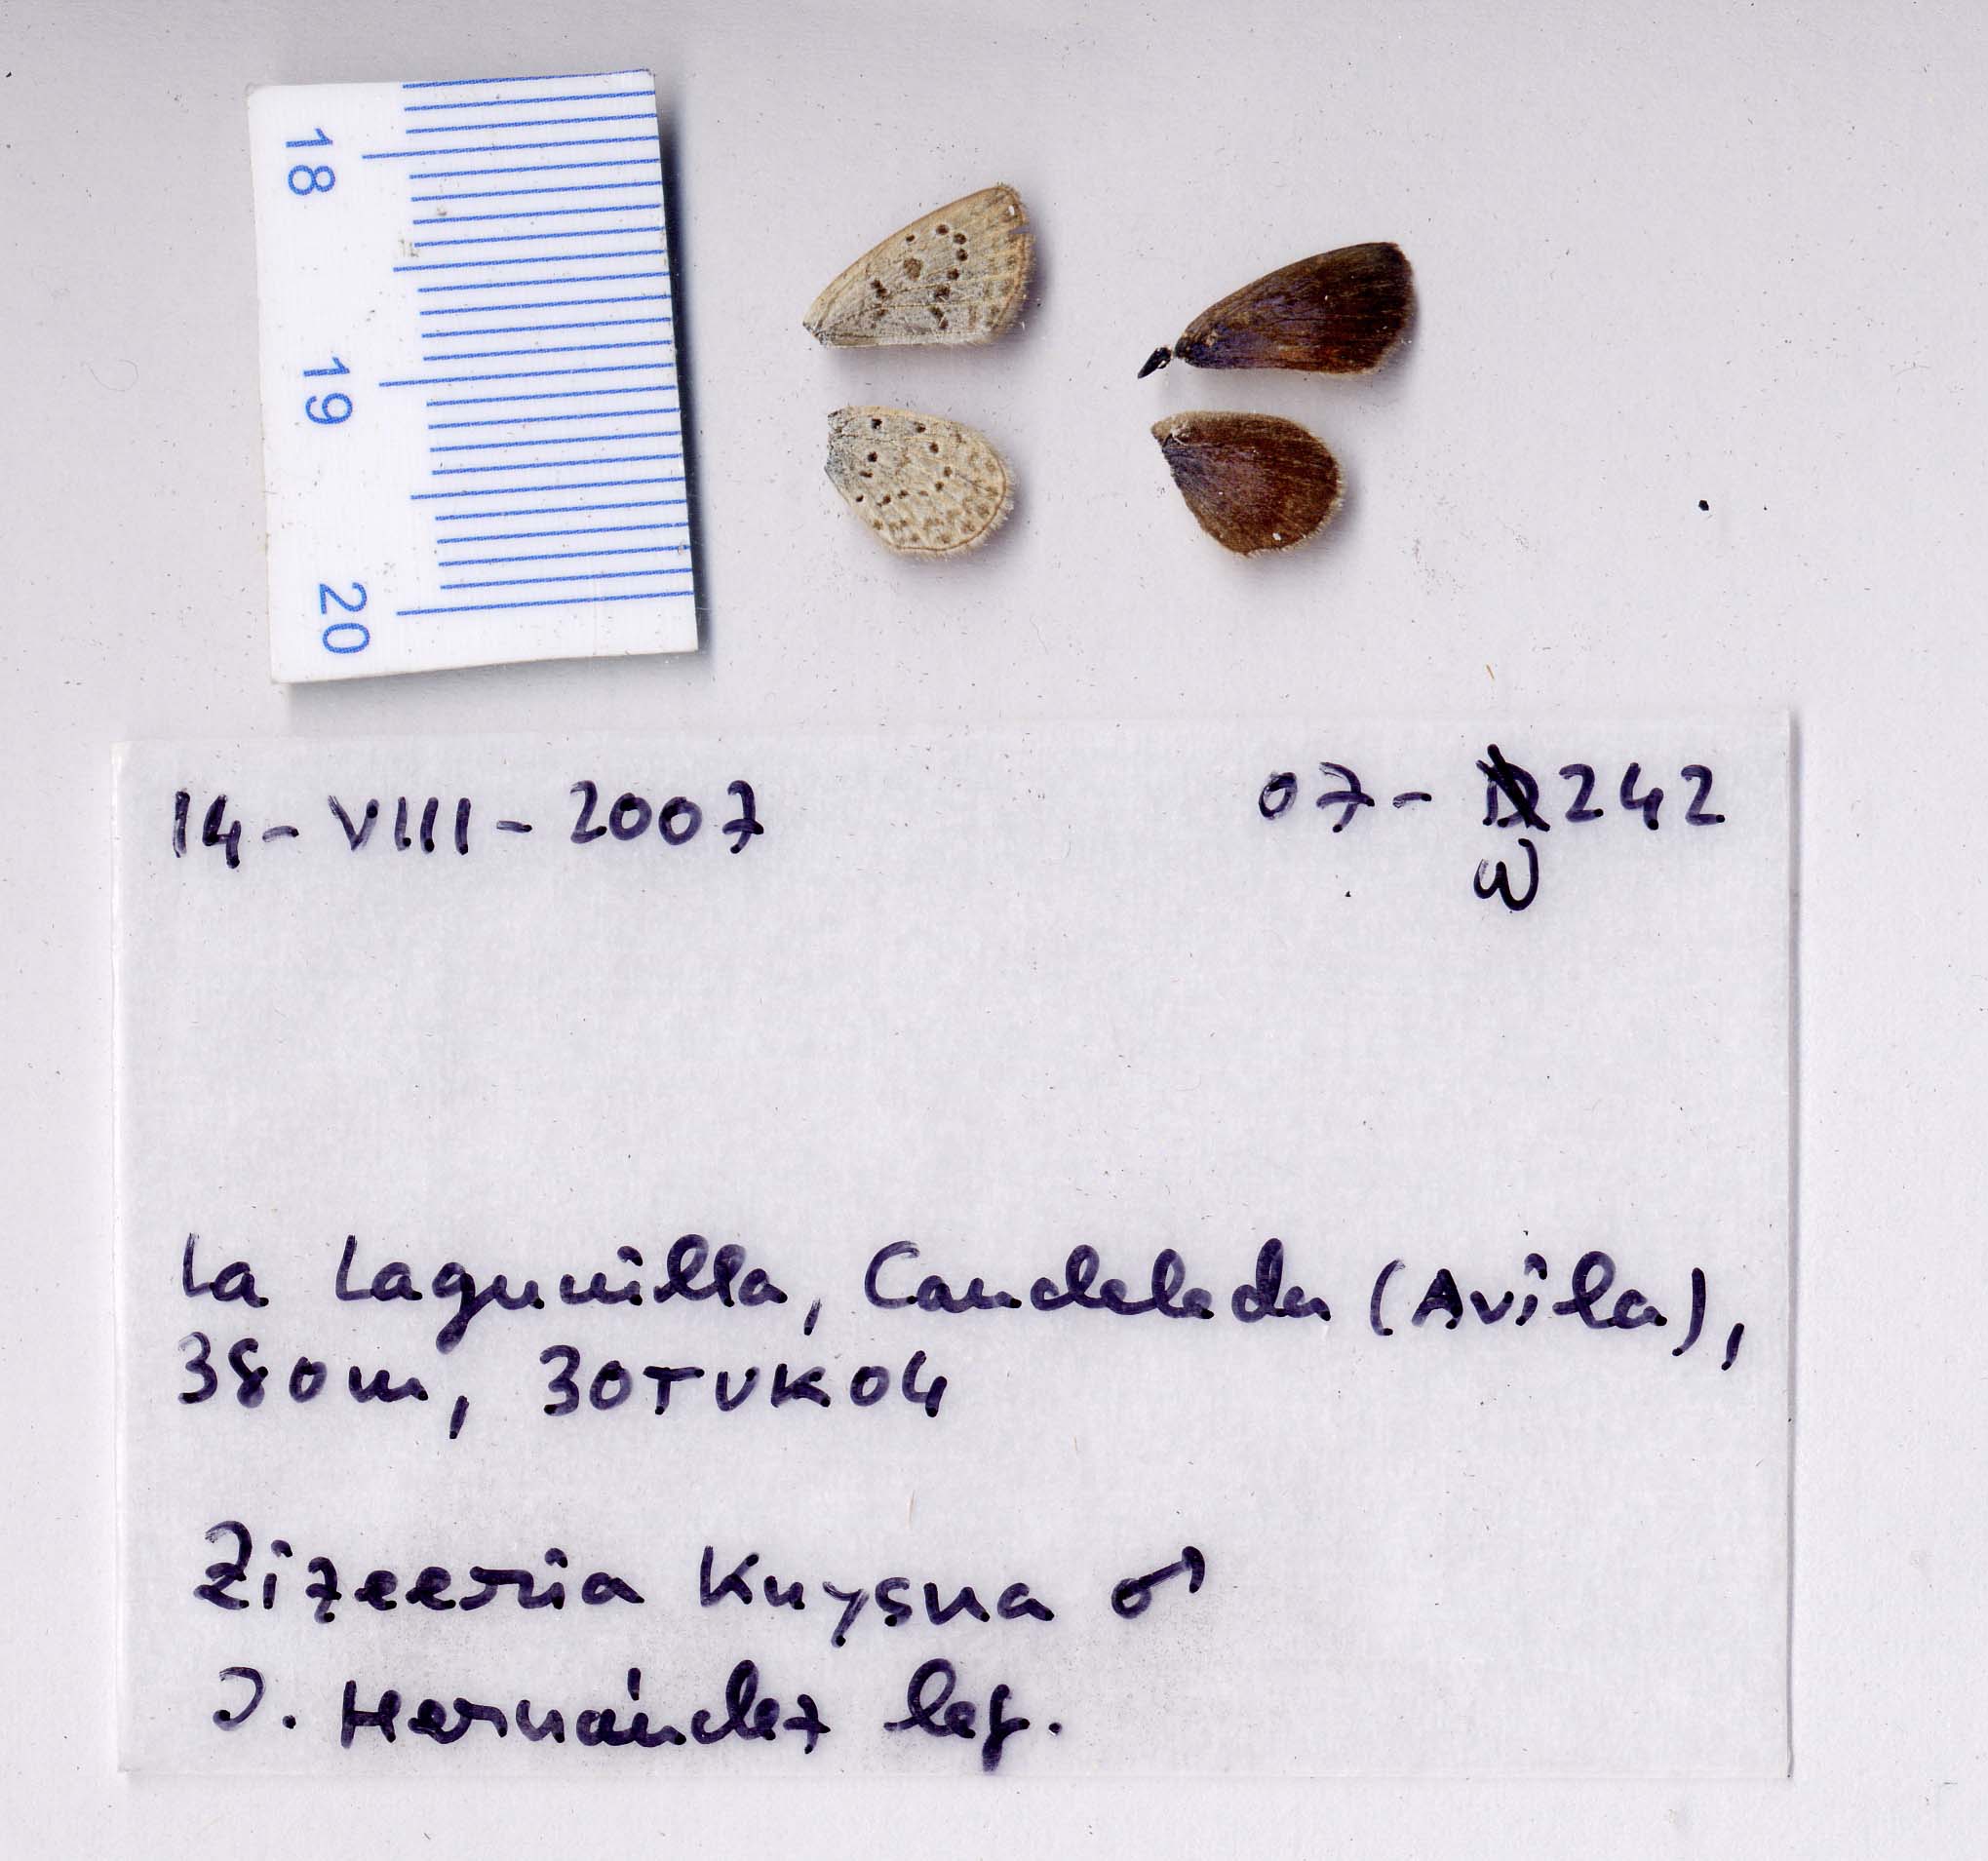 18
19
20
14-VIII-2007
07-242
W
La Lagunilla, Candeleda (Avila),
380m, 30TUK04
Zizeeria Knysna ♂
J. Hernández leg.